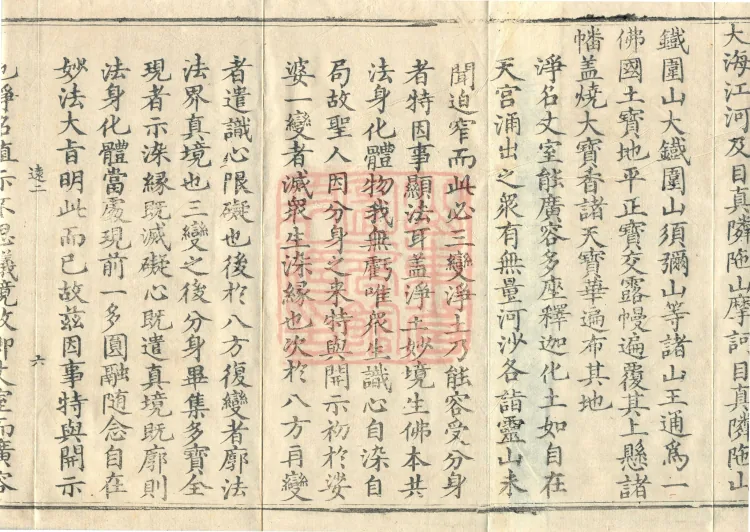 大海江河及目真隣陁山摩訶目真隣陁山
鐵圍山大鐵圍山須彌山等諸山王通為一
佛國土寶地平正寶交露幔遍覆其上懸諸
幡盖燒大寶香諸天寶華遍布其地
淨名丈室能廣容多座釋迦化土如自在
天宮涌出之衆有無量河沙各詣靈山未
聞迫窄而此必三變淨土乃能容受分身
者特因事顯法耳盖淨土妙境生佛本共
法身化體物我無虧唯衆生識心自染自
局故聖人因分身之来特與開示初於娑
婆一變者滅衆生染縁也次於八方再變
者遣識心限礙也後於八方復變者廓法
法界真境也三變之後分身畢集多寶全
現者示染縁既滅礙心既遣真境既廓則
法身化體當處現前一多圓融随念自在
妙法大旨明此而已故兹因事特與開示
遠二
六
也淨名直示不思議境故即丈室而廣容